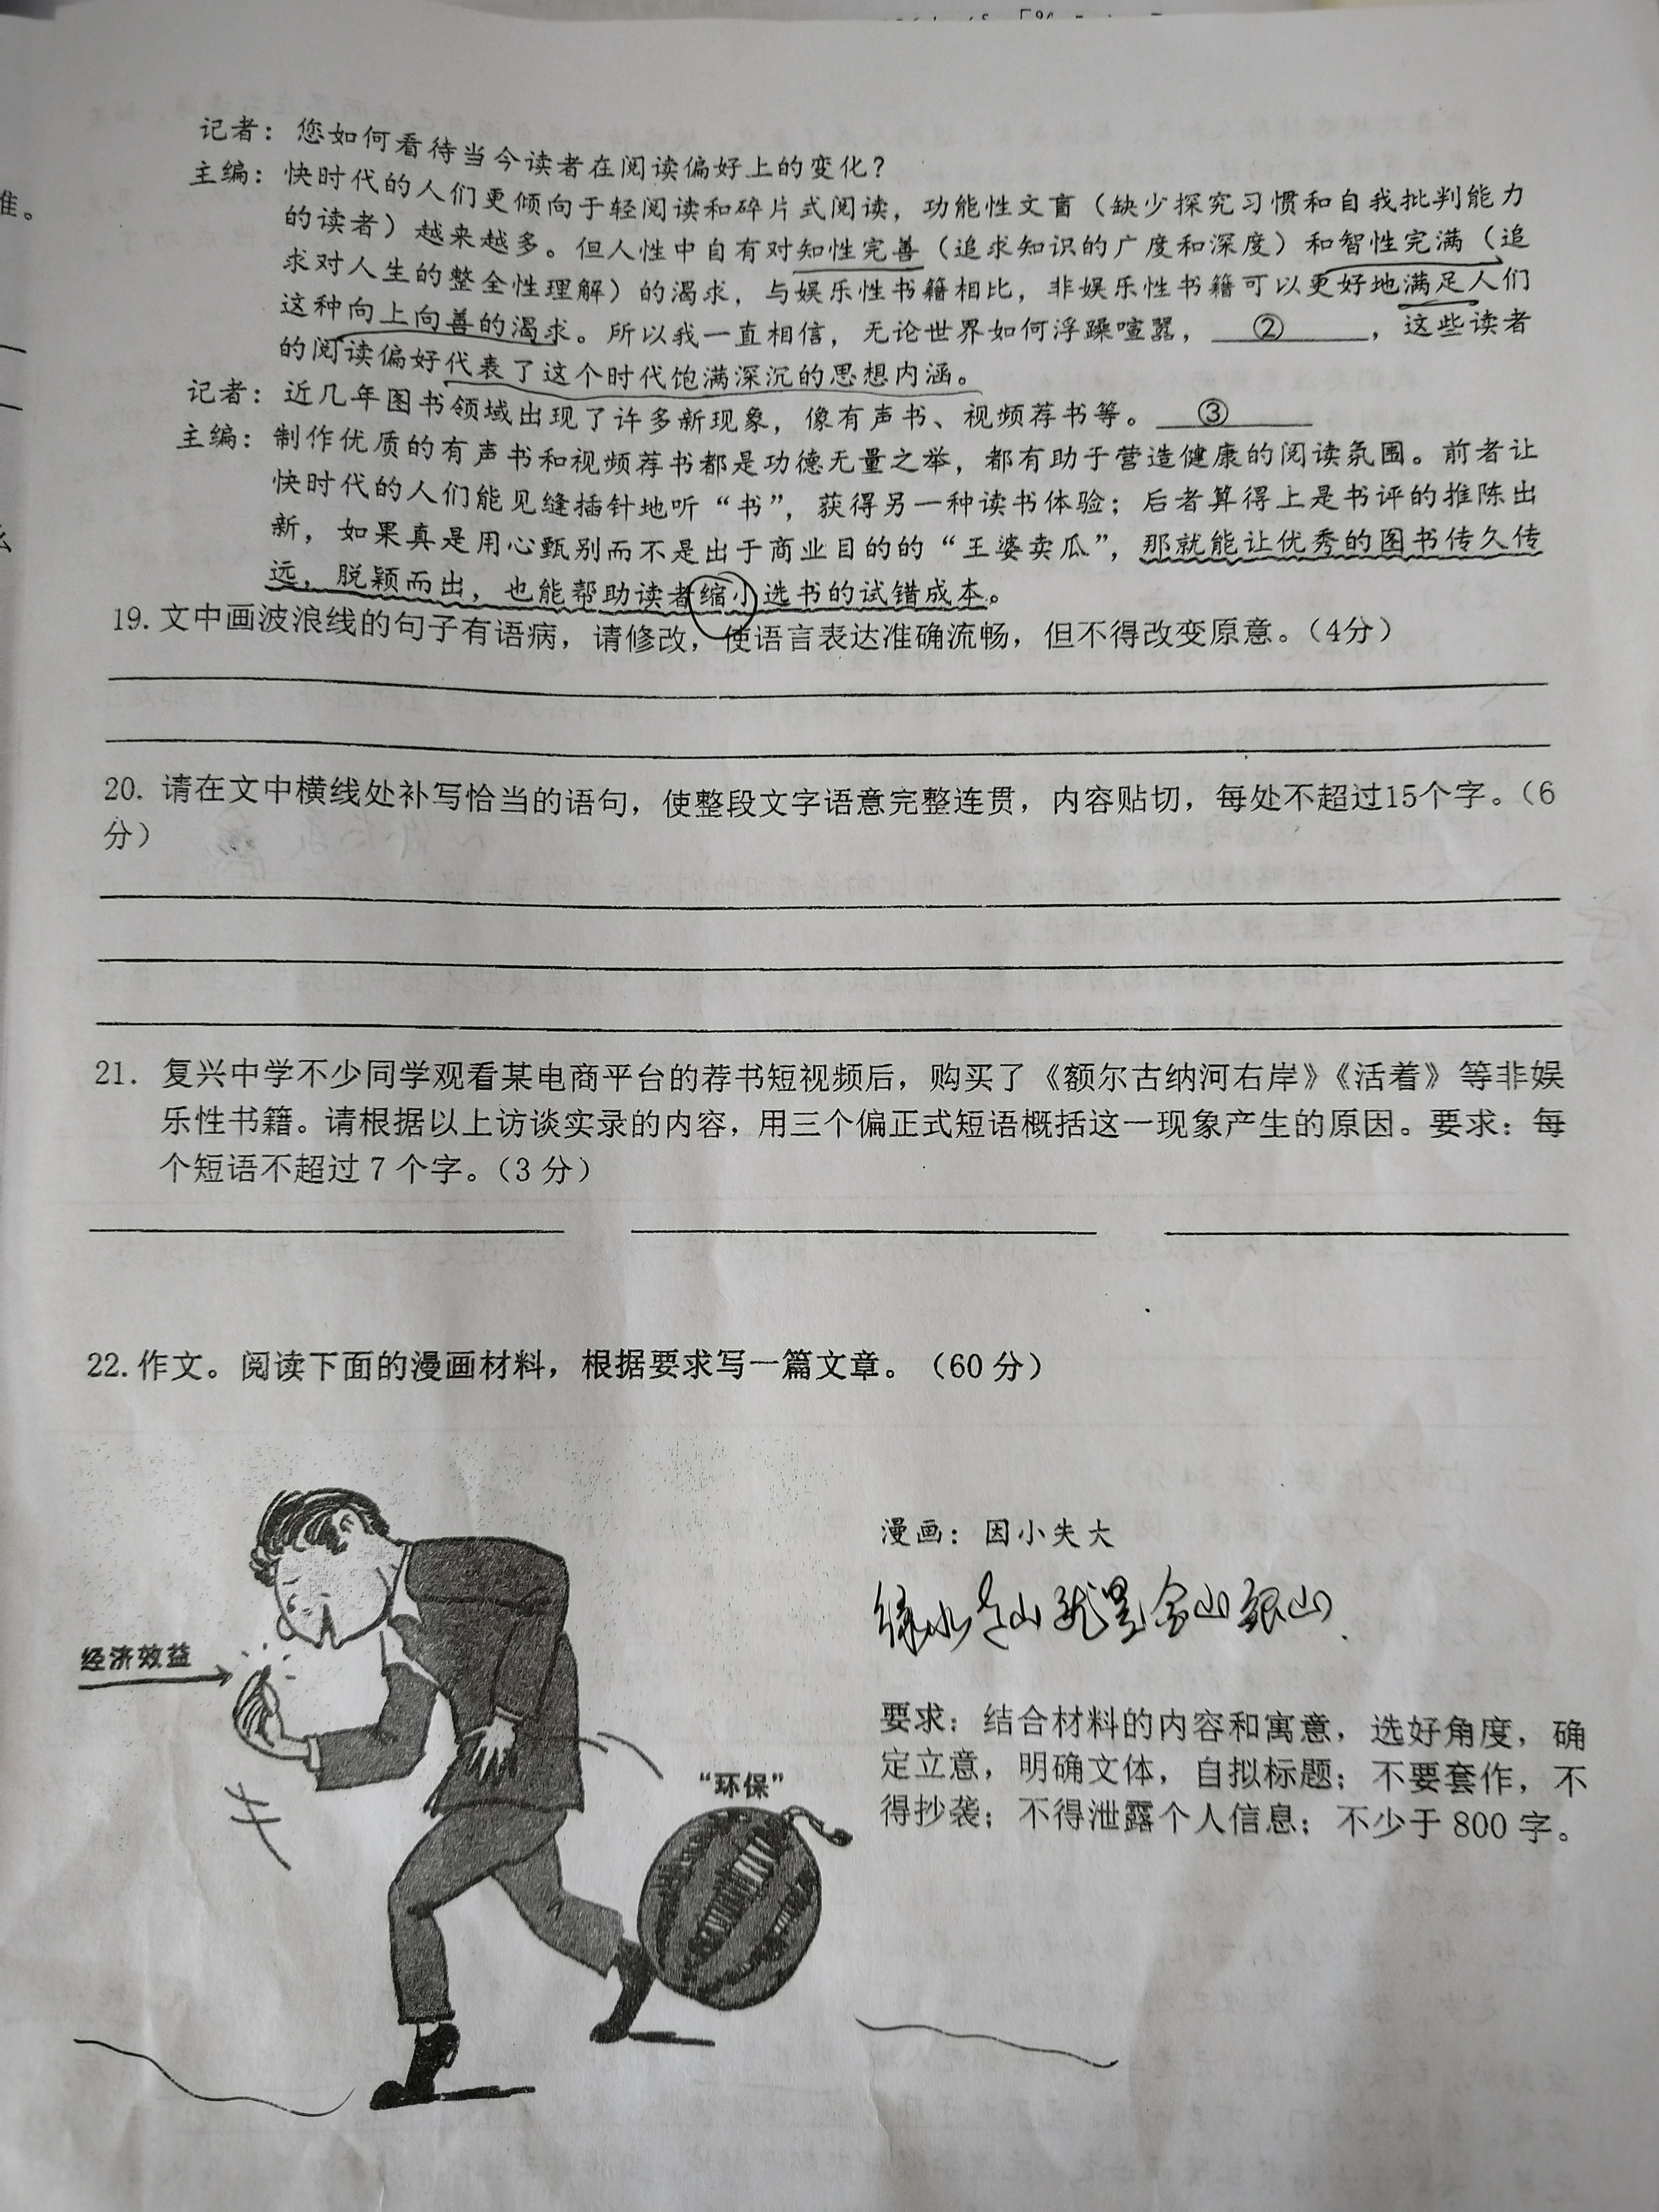 准。
记者：您如何看待当今读者在阅读偏好上的变化？
主编：快时代的人们更倾向于轻阅读和碎片式阅读，功能性文盲（缺少探究习惯和自我批判能力
的读者）越来越多。但人性中自有对知性完善（追求知识的广度和深度）和智性完满（追
求对人生的整全性理解）的渴求，与娱乐性书籍相比，非娱乐性书籍可以更好地满足人们
这种向上向善的渴求。所以我一直相信，无论世界如何浮躁喧嚣，＿＿②＿＿，这些读者
的阅读偏好代表了这个时代饱满深沉的思想内涵。
记者：近几年图书领域出现了许多新现象，像有声书、视频荐书等。＿＿③＿＿
主编：制作优质的有声书和视频荐书都是功德无量之举，都有助于营造健康的阅读氛围。前者让
快时代的人们能见缝插针地听“书”，获得另一种读书体验；后者算得上是书评的推陈出
新，如果真是用心甄别而不是出于商业目的的“王婆卖瓜”，那就能让优秀的图书传久传
远，脱颖而出，也能帮助读者缩小选书的试错成本。
19.文中画波浪线的句子有语病，请修改，使语言表达准确流畅，但不得改变原意。（4分）
20. 请在文中横线处补写恰当的语句，使整段文字语意完整连贯，内容贴切，每处不超过15个字。（6
分）
21. 复兴中学不少同学观看某电商平台的荐书短视频后，购买了《额尔古纳河右岸》《活着》等非娱
乐性书籍。请根据以上访谈实录的内容，用三个偏正式短语概括这一现象产生的原因。要求：每
个短语不超过 7 个字。（3 分）
22.作文。阅读下面的漫画材料，根据要求写一篇文章。（60 分）
漫画：因小失大
绿水青山就是金山银山.
经济效益
要求：结合材料的内容和寓意，选好角度，确
定立意，明确文体，自拟标题；不要套作，不
得抄袭；不得泄露个人信息；不少于 800 字。
“环保”